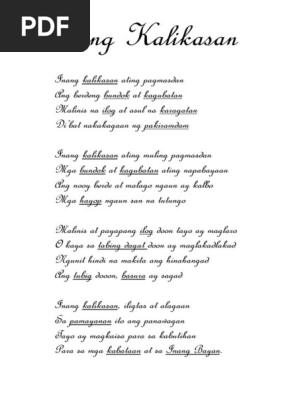 PDF
ng Kalikasan
Inang kalikasan ating pagmasdan
Ang berdeng bundok at kagubatan
Malinis na ilog at asul na karagatan
Di bat nakakagaan ng pakiramdam
Inang kalikasan ating muling pagmasdan
Mga bundok at kagubatan ating napabayaan
Ang nooy berde at malago ngaun ay kalbo
Mga hayop ngaun san na tutungo
Malinis at payapang ilog doon tayo ay maglaro
O kaya sa tabing dagat doon ay maglakadlakad
Ngunit hindi na makita ang hinahangad
Ang tubig dooon, basura ay sagad
Inang kalikasan, iligtas at alagaan
Sa pamayanan ito ang panawagan
Tayo ay magkaisa para sa kabutihan
Para sa mga kabataan at sa Inang Bayan.